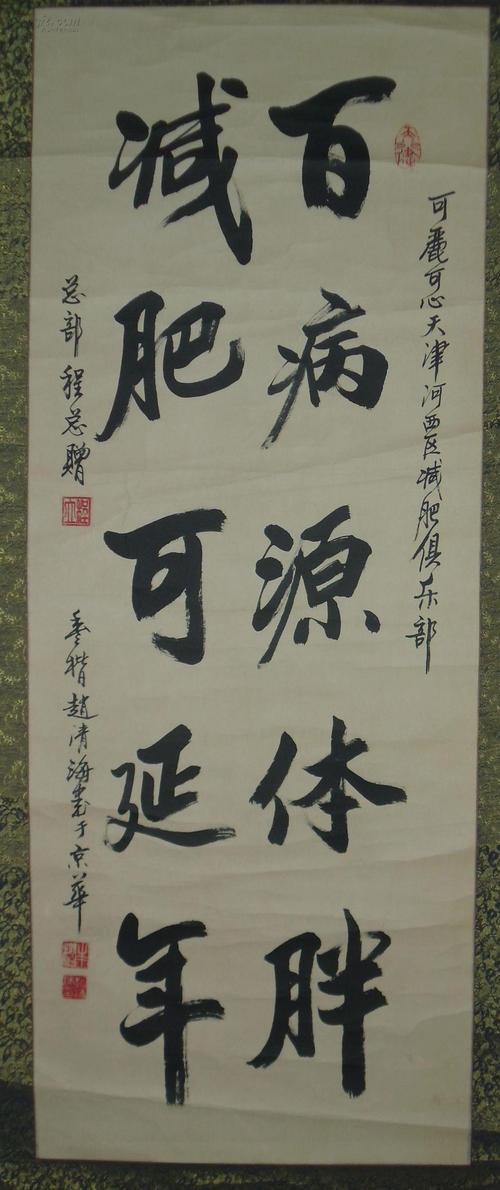 可麗可心天津河西区减肥俱乐部
百病源体胖
减肥可延年
总部程总赠
赵清海书于京華